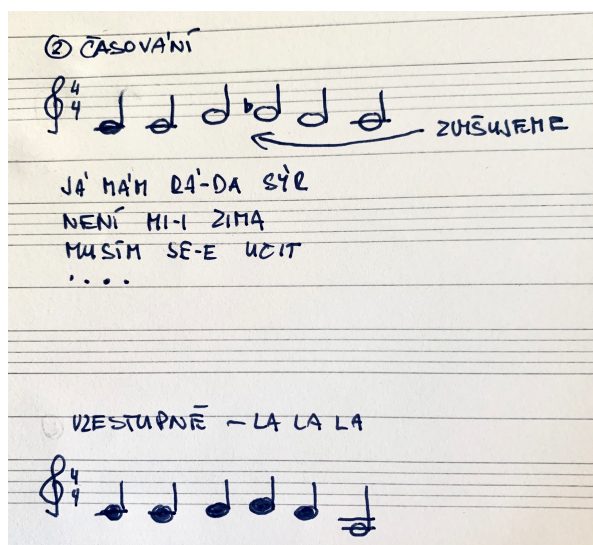 ② ČASOVÁNÍ
4
4
ZVYŠUJEME
JÁ MÁM RÁ-DA SÝR
NENÍ MI-I ZIMA
MUSÍM SE-E UČIT
....
VZESTUPNĚ – LA LA LA
4
4